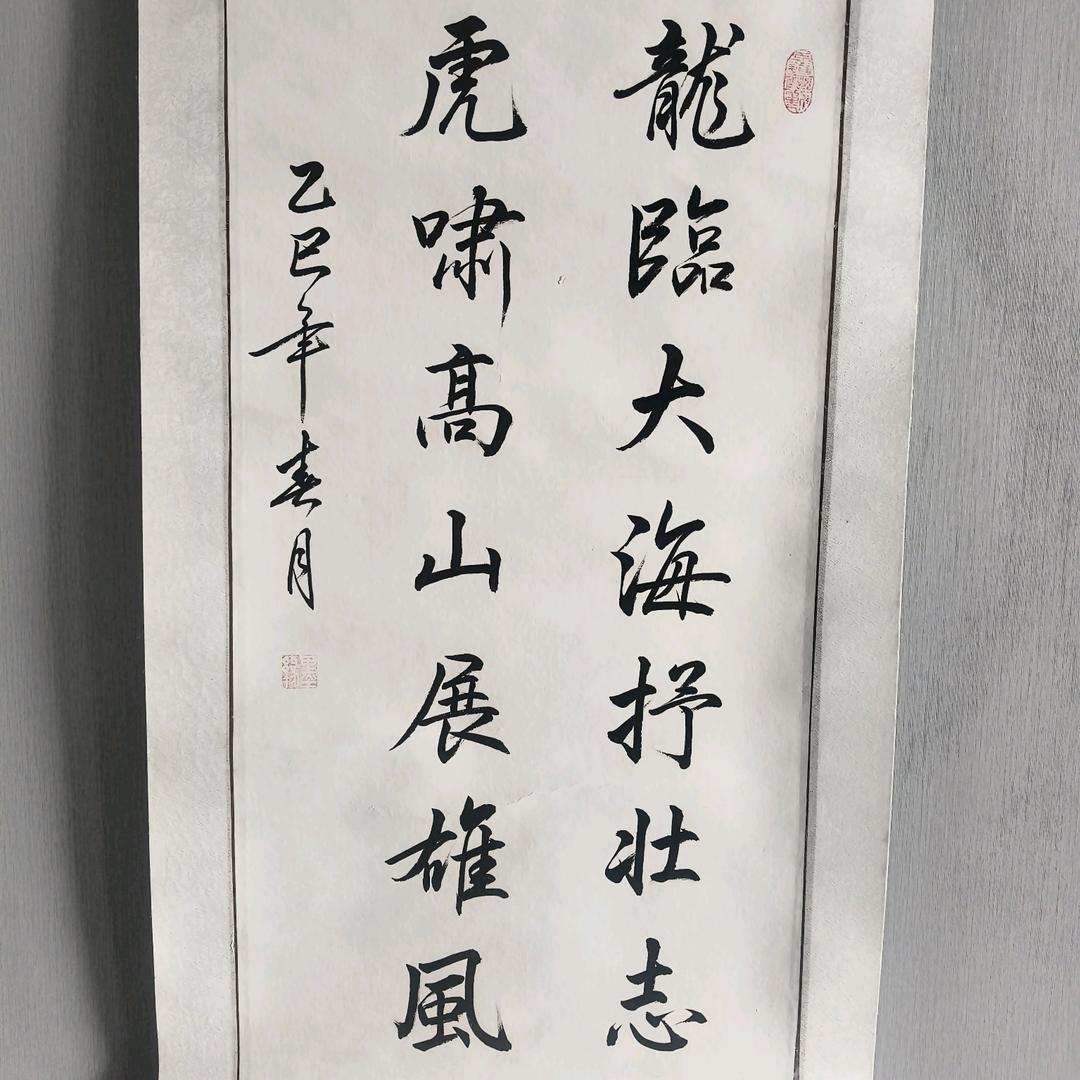 龍臨大海抒壯志
虎嘯高山展雄風
乙巳年春月